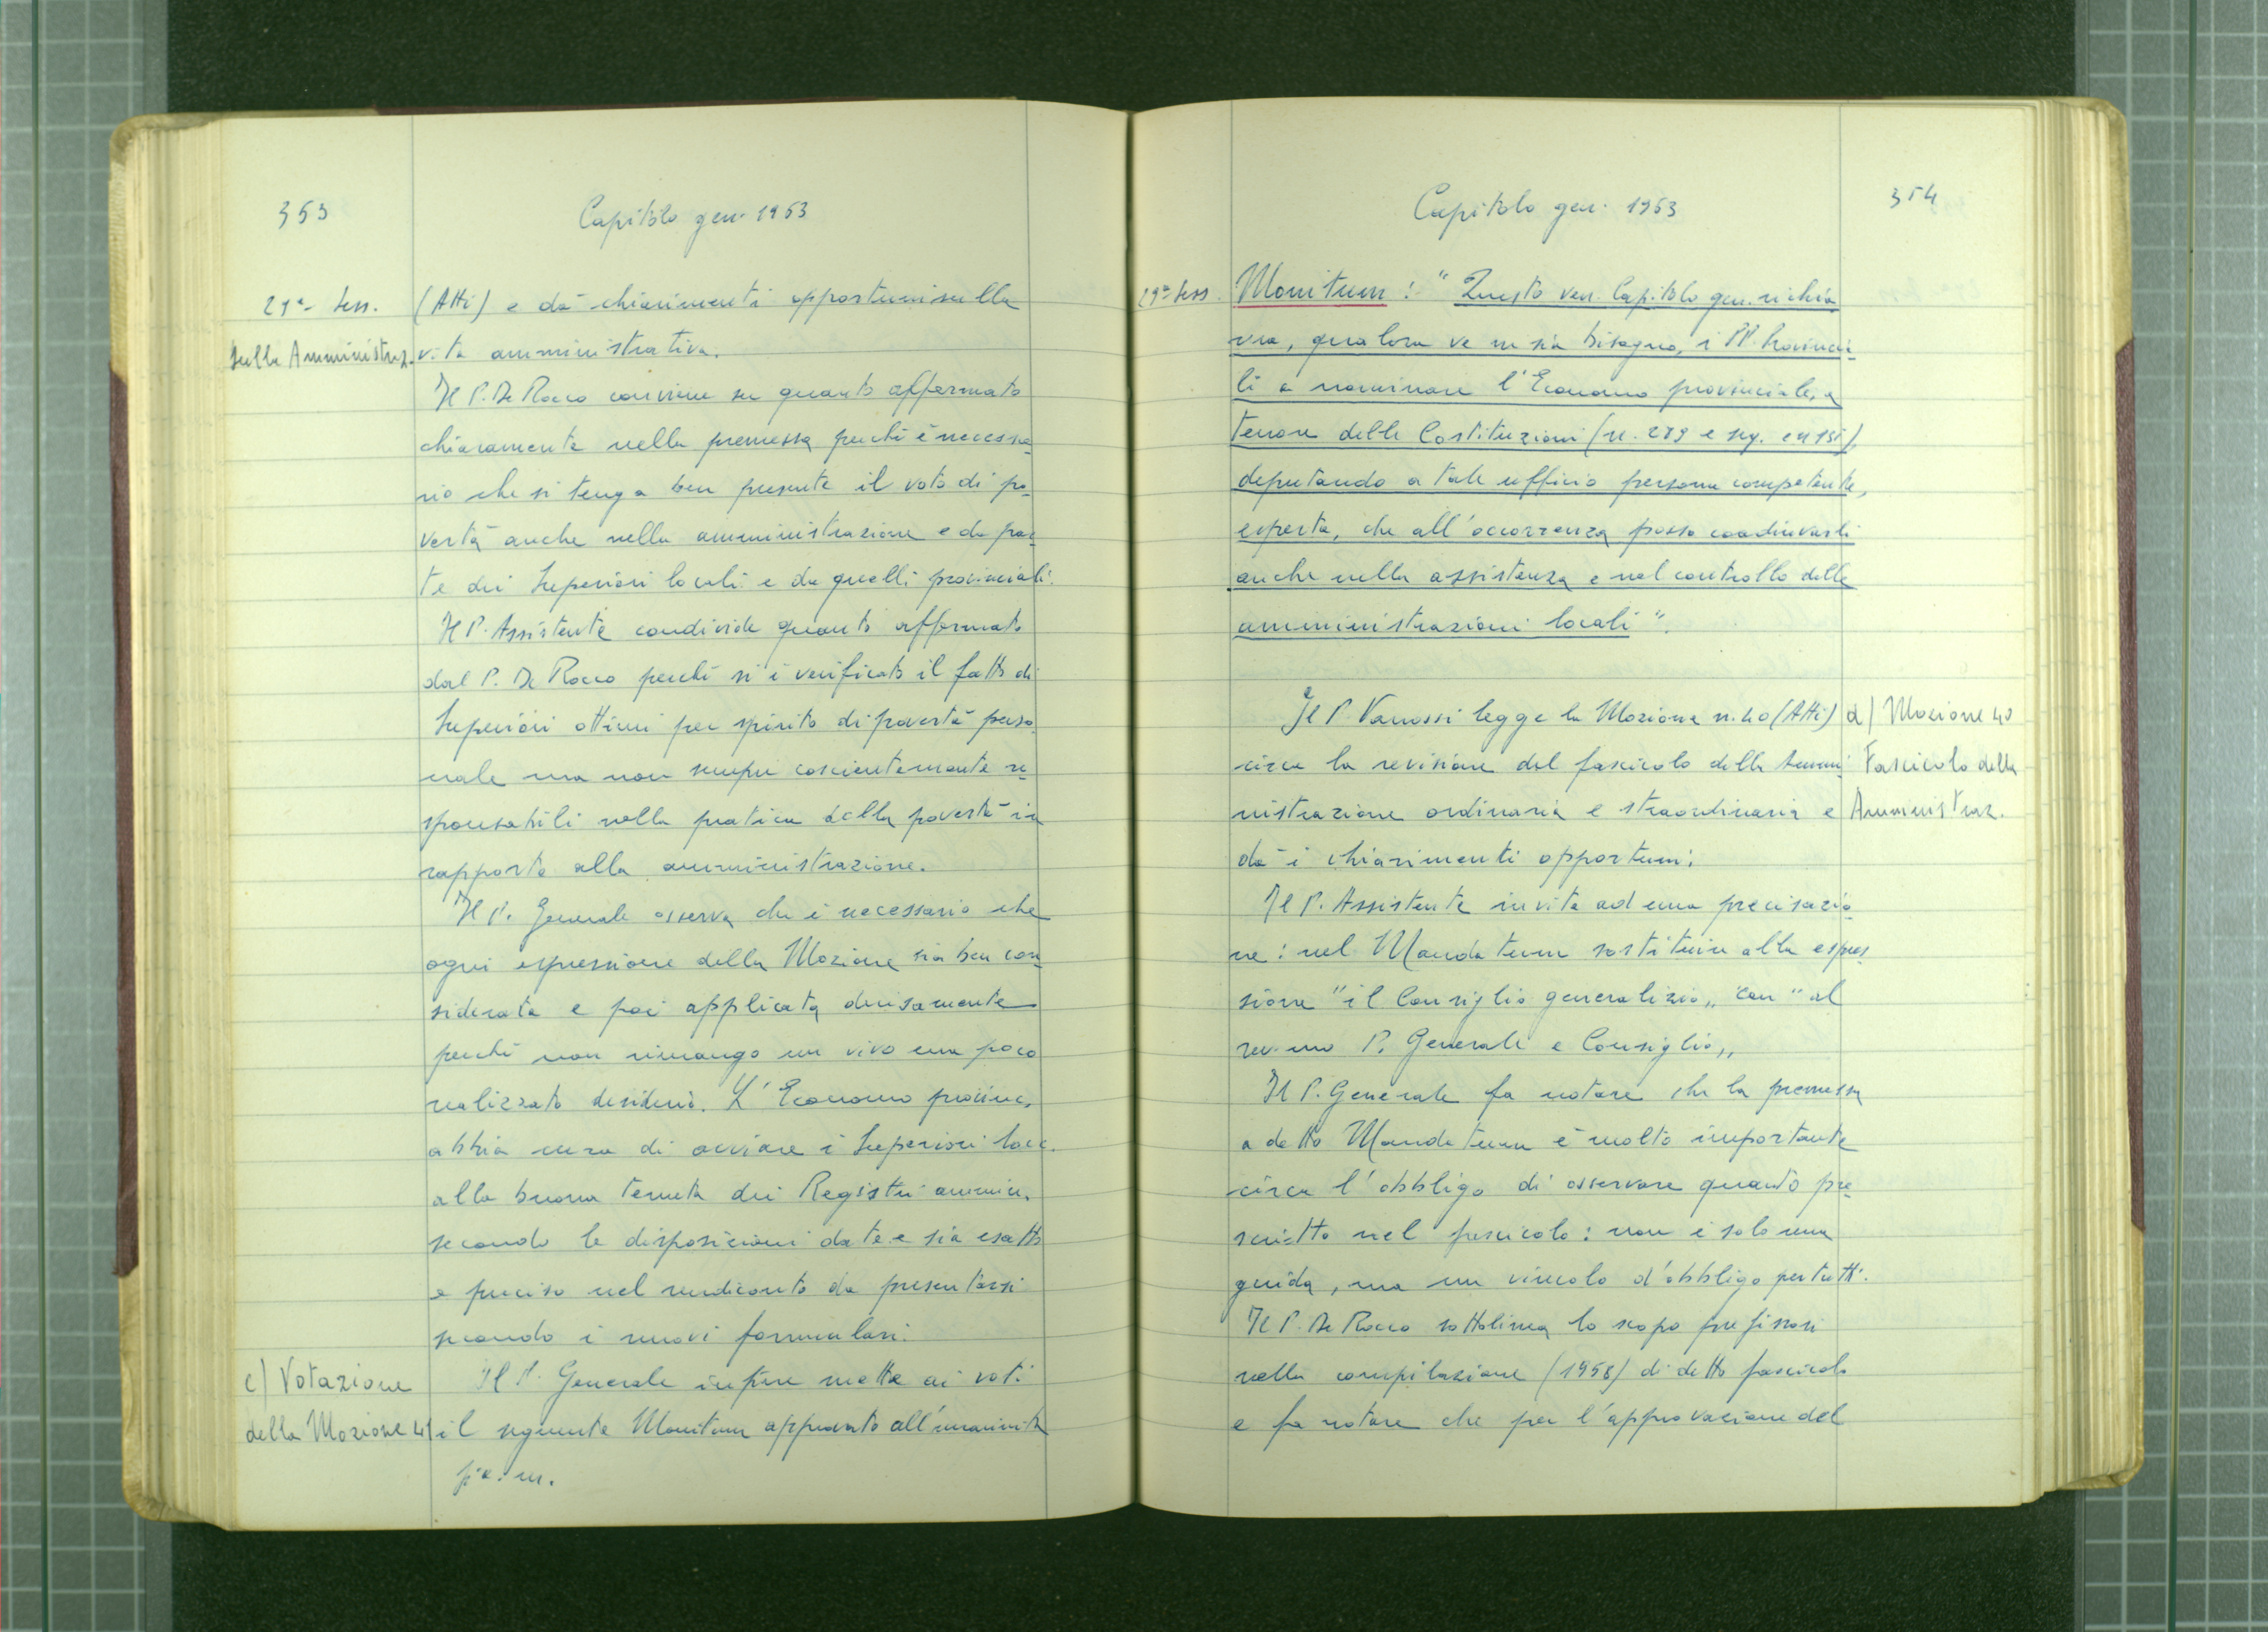 353
Capitolo gen. 1963
21ª Sess.
sulla Amministraz.
(Atti) e dà chiarimenti opportuni sulla
vita amministrativa.
Il P. De Rocco conviene su quanto affermato
chiaramente nella premessa perchè è necessa-
rio che si tenga ben presente il voto di po-
vertà anche nella amministrazione e da par-
te dei Superiori locali e da quelli provinciali.
Il P. Assistente condivide quanto affermato
dal P. De Rocco perchè si è verificato il fatto di
Superiori ottimi per spirito di povertà perso
nale ma non sempre coscientemente re-
sponsabili nella pratica della povertà in
rapporto alla amministrazione.
Il P. Generale osserva che è necessario che
ogni espressione della Mozione sia ben con-
siderata e poi applicata decisamente
perchè non rimanga un vivo ma poco
realizzato desiderio. L'Economo provinc.
abbia cura di avviare i Superiori loc.
alla buona tenuta dei Registri ammin.
secondo le disposizioni date e sia esatto
e preciso nel rendiconto da presentarsi
secondo i nuovi formulari.
c) Votazione
della Mozione 41
Il P. Generale infine mette ai voti
il seguente Monitum approvato all'unanimità
p. a. m.
354
Capitolo gen. 1963
21ª Sess.
Monitum: "Questo ven. Capitolo gen. richia
ma, qualora ve ne sia bisogno, i PP. Provincia-
li a nominare l'Economo provinciale, a
tenore delle Costituzioni (n. 289 e seg.
deputando a tale ufficio persona competente,
esperta, che all'occorrenza possa coadiuvarli
anche nella assistenza e nel controllo delle
amministrazioni locali".
d) Mozione 40
Fascicolo della
Amministraz.
Il P. Vanossi legge la Mozione n. 40 (Atti)
circa la revisione del fascicolo della Ammi
nistrazione ordinaria e straordinaria e
dà i chiarimenti opportuni.
Il P. Assistente invita ad una precisazio-
ne: nel Mandatum sostituire alla espres
sione "il Consiglio generalizio" con "al
rev.mo P. Generale e Consiglio"
Il P. Generale fa notare che la premessa
a detto Mandatum è molto importante
circa l'obbligo di osservare quanto pre-
scritto nel fascicolo: non è solo una
guida, ma un vincolo d'obbligo per tutti.
Il P. De Rocco sottolinea lo scopo prefissosi
nella compilazione (1958) di detto fascicolo
e fa notare che per l'approvazione del